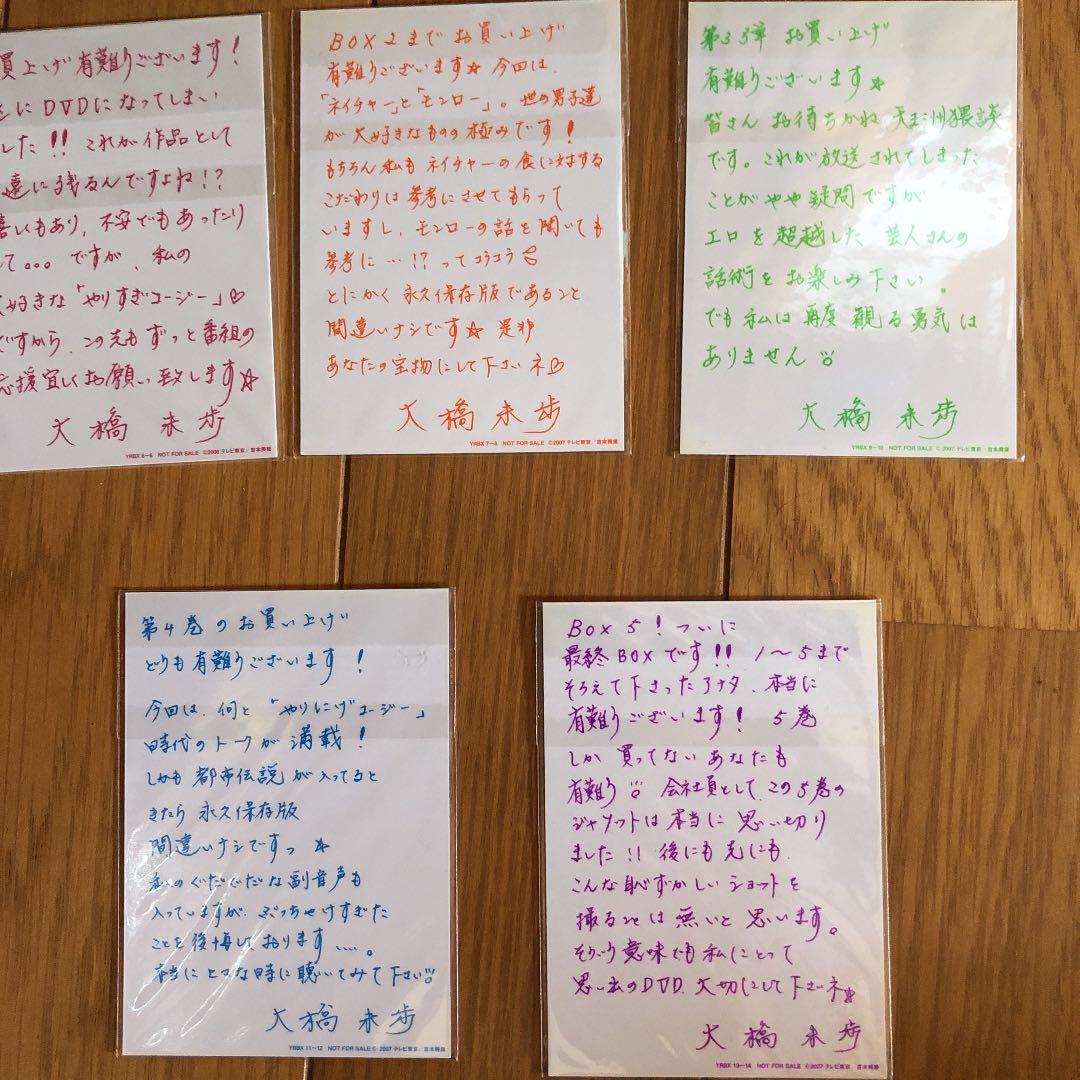 買上げ有難うございます!
にDVDになってしまい
した!! これが作品として
遠に残るんですよね!?
喜しくもあり、不安でもあったり
して。。。ですが、私の
好きな「やりすぎコージー」♡
ですから、この先もずっと番組の
応援宜しくお願い致します☆
大橋未歩
YRBX 5〜6 NOT FOR SALE ©2006 テレビ東京/吉本興業
BOX 2までお買い上げ
有難うございます☆ 今回は、
「ネイチャー」と「モンロー」。世の男子達
が大好きなものの極みです!
もちろん私もネイチャーの食に対する
こだわりは参考にさせてもらって
いますし、モンローの話を聞いても
参考に…!? ってコラコラ
とにかく永久保存版であること
間違いナシです☆ 是非
あなたの宝物にして下さいネ♡
大橋未歩
YRBX 7〜8 NOT FOR SALE ©2007 テレビ東京/吉本興業
第3弾 お買い上げ
有難うございます☆
皆さんお待ちかね 天王洲猥談
です。これが放送されてしまった
ことがやや疑問ですが
エロを超越した芸人さんの
話術をお楽しみ下さい。
でも私は再度観る勇気は
ありません
大橋未歩
YRBX 9〜10 NOT FOR SALE ©2007 テレビ東京/吉本興業
第4巻のお買い上げ
どうも有難うございます!
今回は、何と「やりにげコージー」
時代のトークが満載!
しかも都市伝説が入ってると
きたら永久保存版
間違いナシですっ ☆
私のぐだぐだな副音声も
入っていますが、ぶっちゃけすぎた
ことを後悔しております….。
本当にヒマな時に聴いてみて下さい
大橋未歩
YRBX 11〜12 NOT FOR SALE © 2007 テレビ東京/吉本興業
BOX 5! ついに
最終BOXです!! 1〜5まで
そろえて下さったアナタ、本当に
有難うございます! 5巻
しか買ってないあなたも
有難う 会社員として、この5巻の
ジャケットは本当に思い切り
ました!! 後にも先にも、
こんな恥ずかしいショットを
撮ることは無いと思います。
そういう意味でも私にとって
思い出のDVD、大切にして下さいネ☆
大橋未歩
YRBX 13〜14 NOT FOR SALE ©2007 テレビ東京 吉本興業